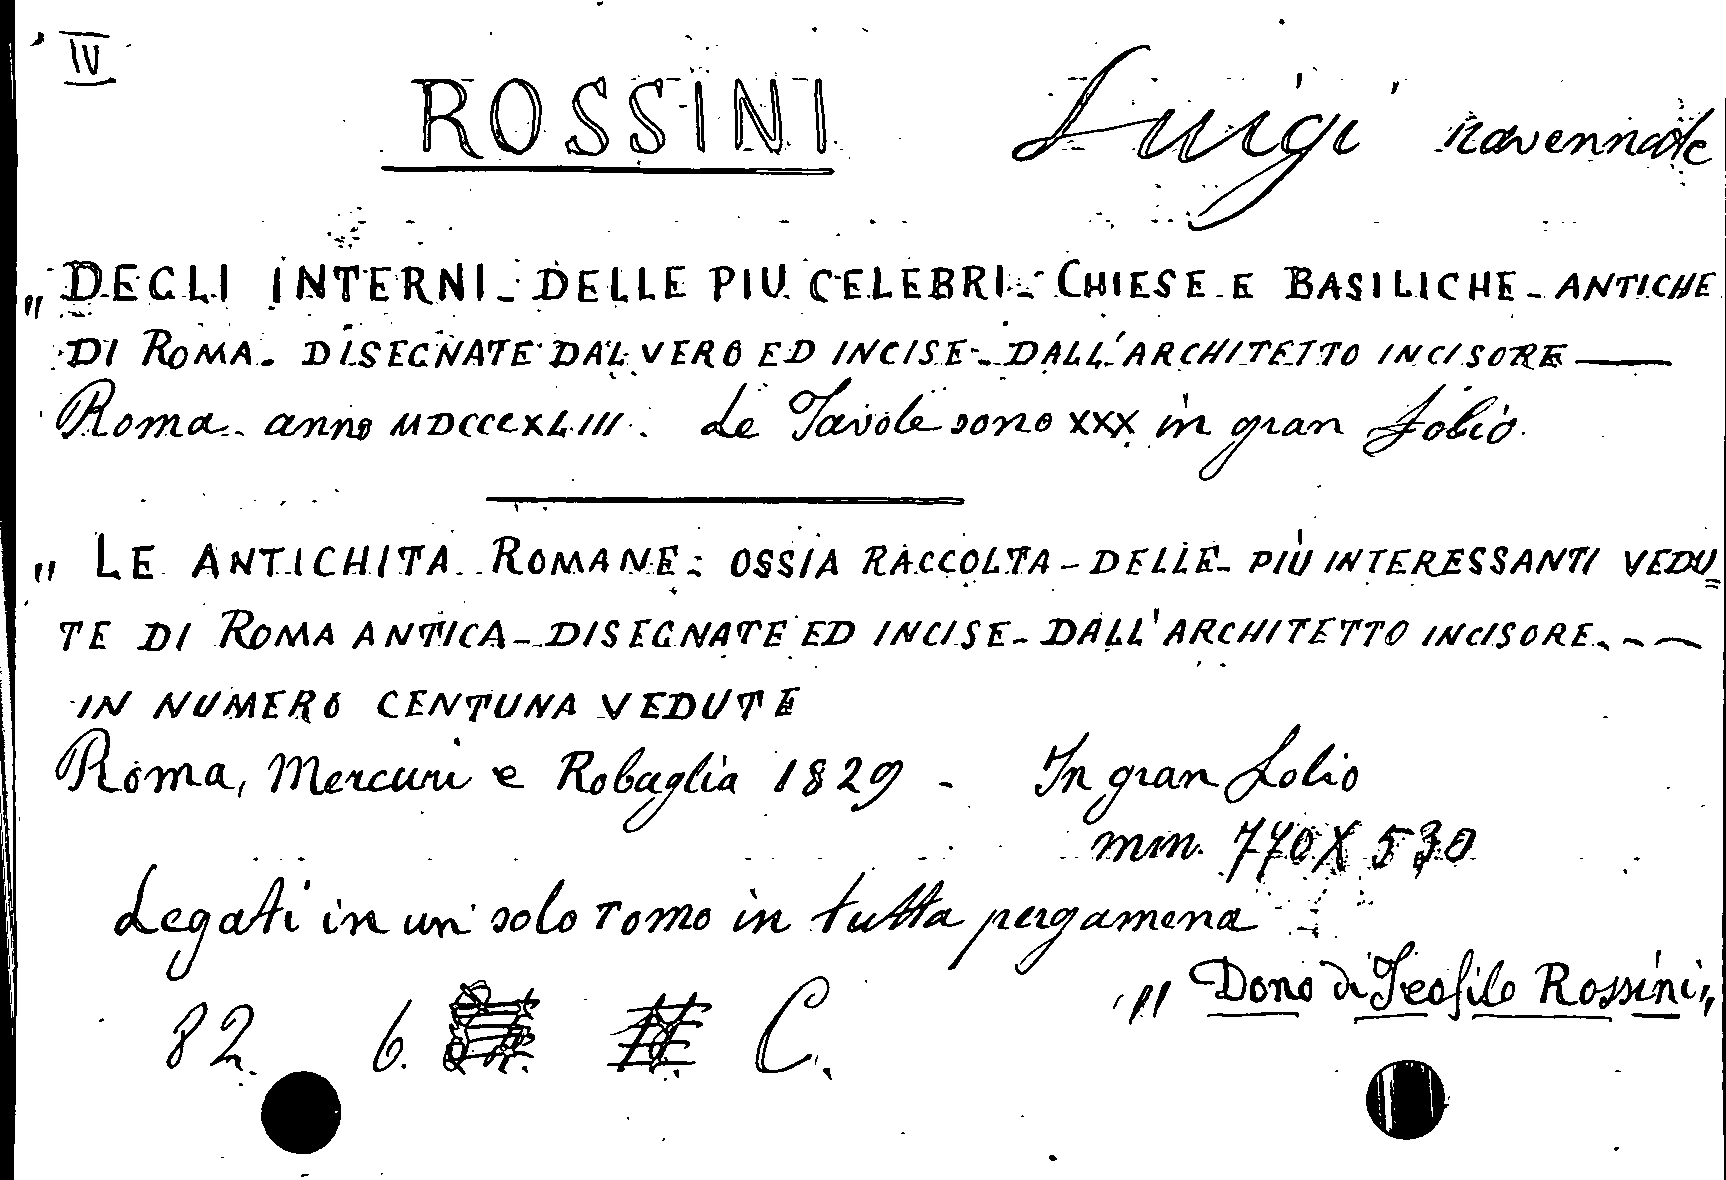 IV
ROSSINI Luigi ravennate
„ DEGLI INTERNI - DELLE PIU CELEBRI - CHIESE E BASILICHE - ANTICHE
DI ROMA - DISEGNATE DAL VERO ED INCISE - DALL'ARCHITETTO INCISORE —
Roma - anno MDCCCXLIII. Le Tavole sono XXX in gran folio.
„ LE ANTICHITA ROMANE - OSSIA RACCOLTA - DELLE - PIÙ INTERESSANTI VEDU=
TE DI ROMA ANTICA - DISEGNATE ED INCISE - DALL'ARCHITETTO INCISORE - - —
IN NUMERO CENTUNA VEDUTE
Roma, Mercuri e Robaglia 1829 - In gran folio
mm. 770 X 530
Legati in un solo tomo in tutta pergamena
„ Dono di Teofilo Rossini „
82. 6. C.